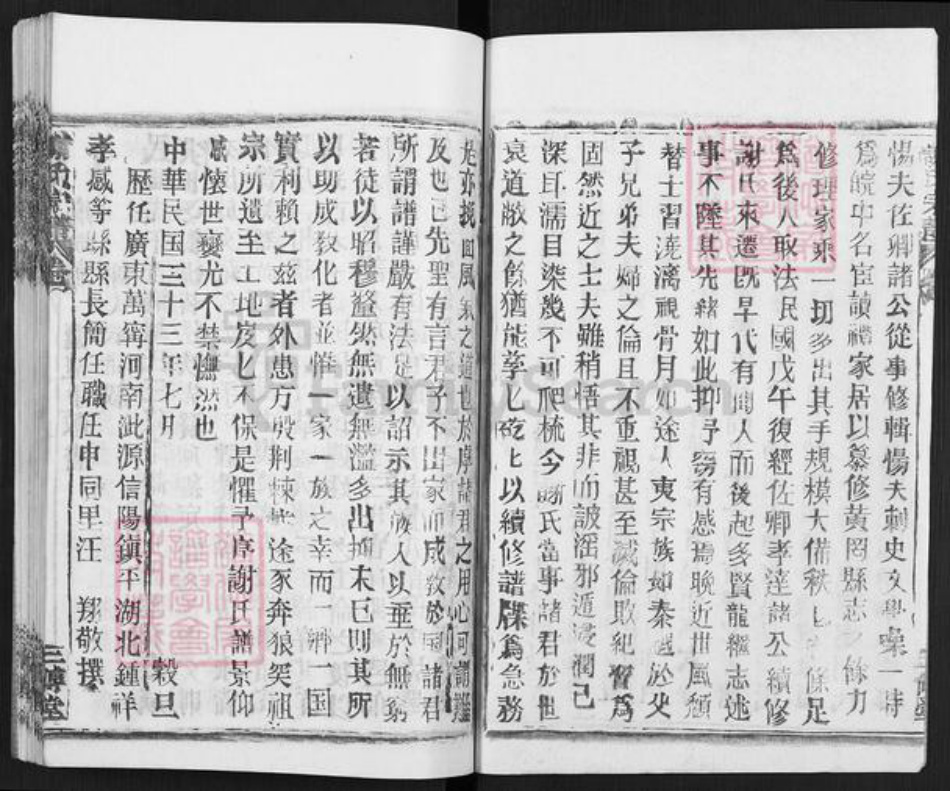 惕夫佐卿諸公從事修輯惕夫刺史文學噪一時
為皖中名宦讀禮家居以慕修黃罔縣志餘力
修理家乘一切多出其手規模大備秩條足
為後人取法民國戊午復經佐卿孝達諸公續修
謝氏來遷既早代有聞人而後起多賢龍繼志述
事不墜其先緒如此抑予竊有感焉晚近世風頹
替士習澆漓視骨月如途人夷宗族如秦越於父
子兄弟夫婦之倫且不重視甚至滅倫敗紀習為
固然近之士夫雖稍悟其非而詖滛邪遁浸潤已
深耳濡目染幾不可爬梳今謝氏當事諸君於世
衰道敝之餘猶能孳匕矻匕以續修譜牒為急務
是亦挽回風氣之道也於序諸君之用心可謂難
及也已先聖有言君子不出家而成敎於國諸君
所謂譜謹嚴有法足以詔示其族人以垂於無窮
若徒以昭穆釐然無遺無濫多出抑末已則其所
以助成敎化者並惟一家一族之幸而一鄉一国
實利賴之兹者外患方殷荆棘途豕奔狼突祖
宗所遺至工地岌匕不保是懼予序謝氏譜景仰
懷世變尤不禁憮然也
中華民国三十三年七月 穀旦
歷任廣東萬寗河南泚源信陽鎮平湖北鍾祥
孝感等縣縣長簡任職任申同里汪 翔敬撰
三傳堂